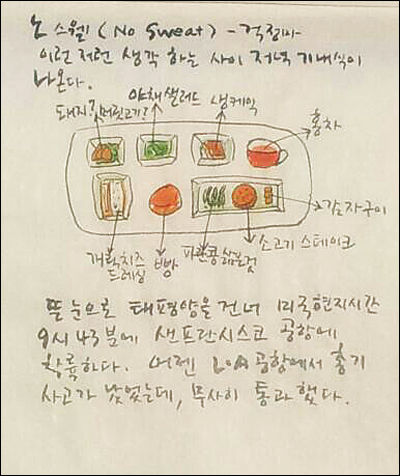 노 스웰! (No Sweat) - 걱정마
이런 저런 생각 하는 사이 저녁 기내식이
나온다.
돼지? 머릿고기?
야채샐러드
생케익
홍차
감자구이
소고기 스테이크
파란콩 삶은것
빵
치즈
드레싱
뜬 눈으로 태평양을 건너 미국현지시간
9시 43분에 샌프란시스코 공항에
착륙하다. 어젠 L.A 공항에서 총기
사고가 났었는데, 무사히 통과 했다.